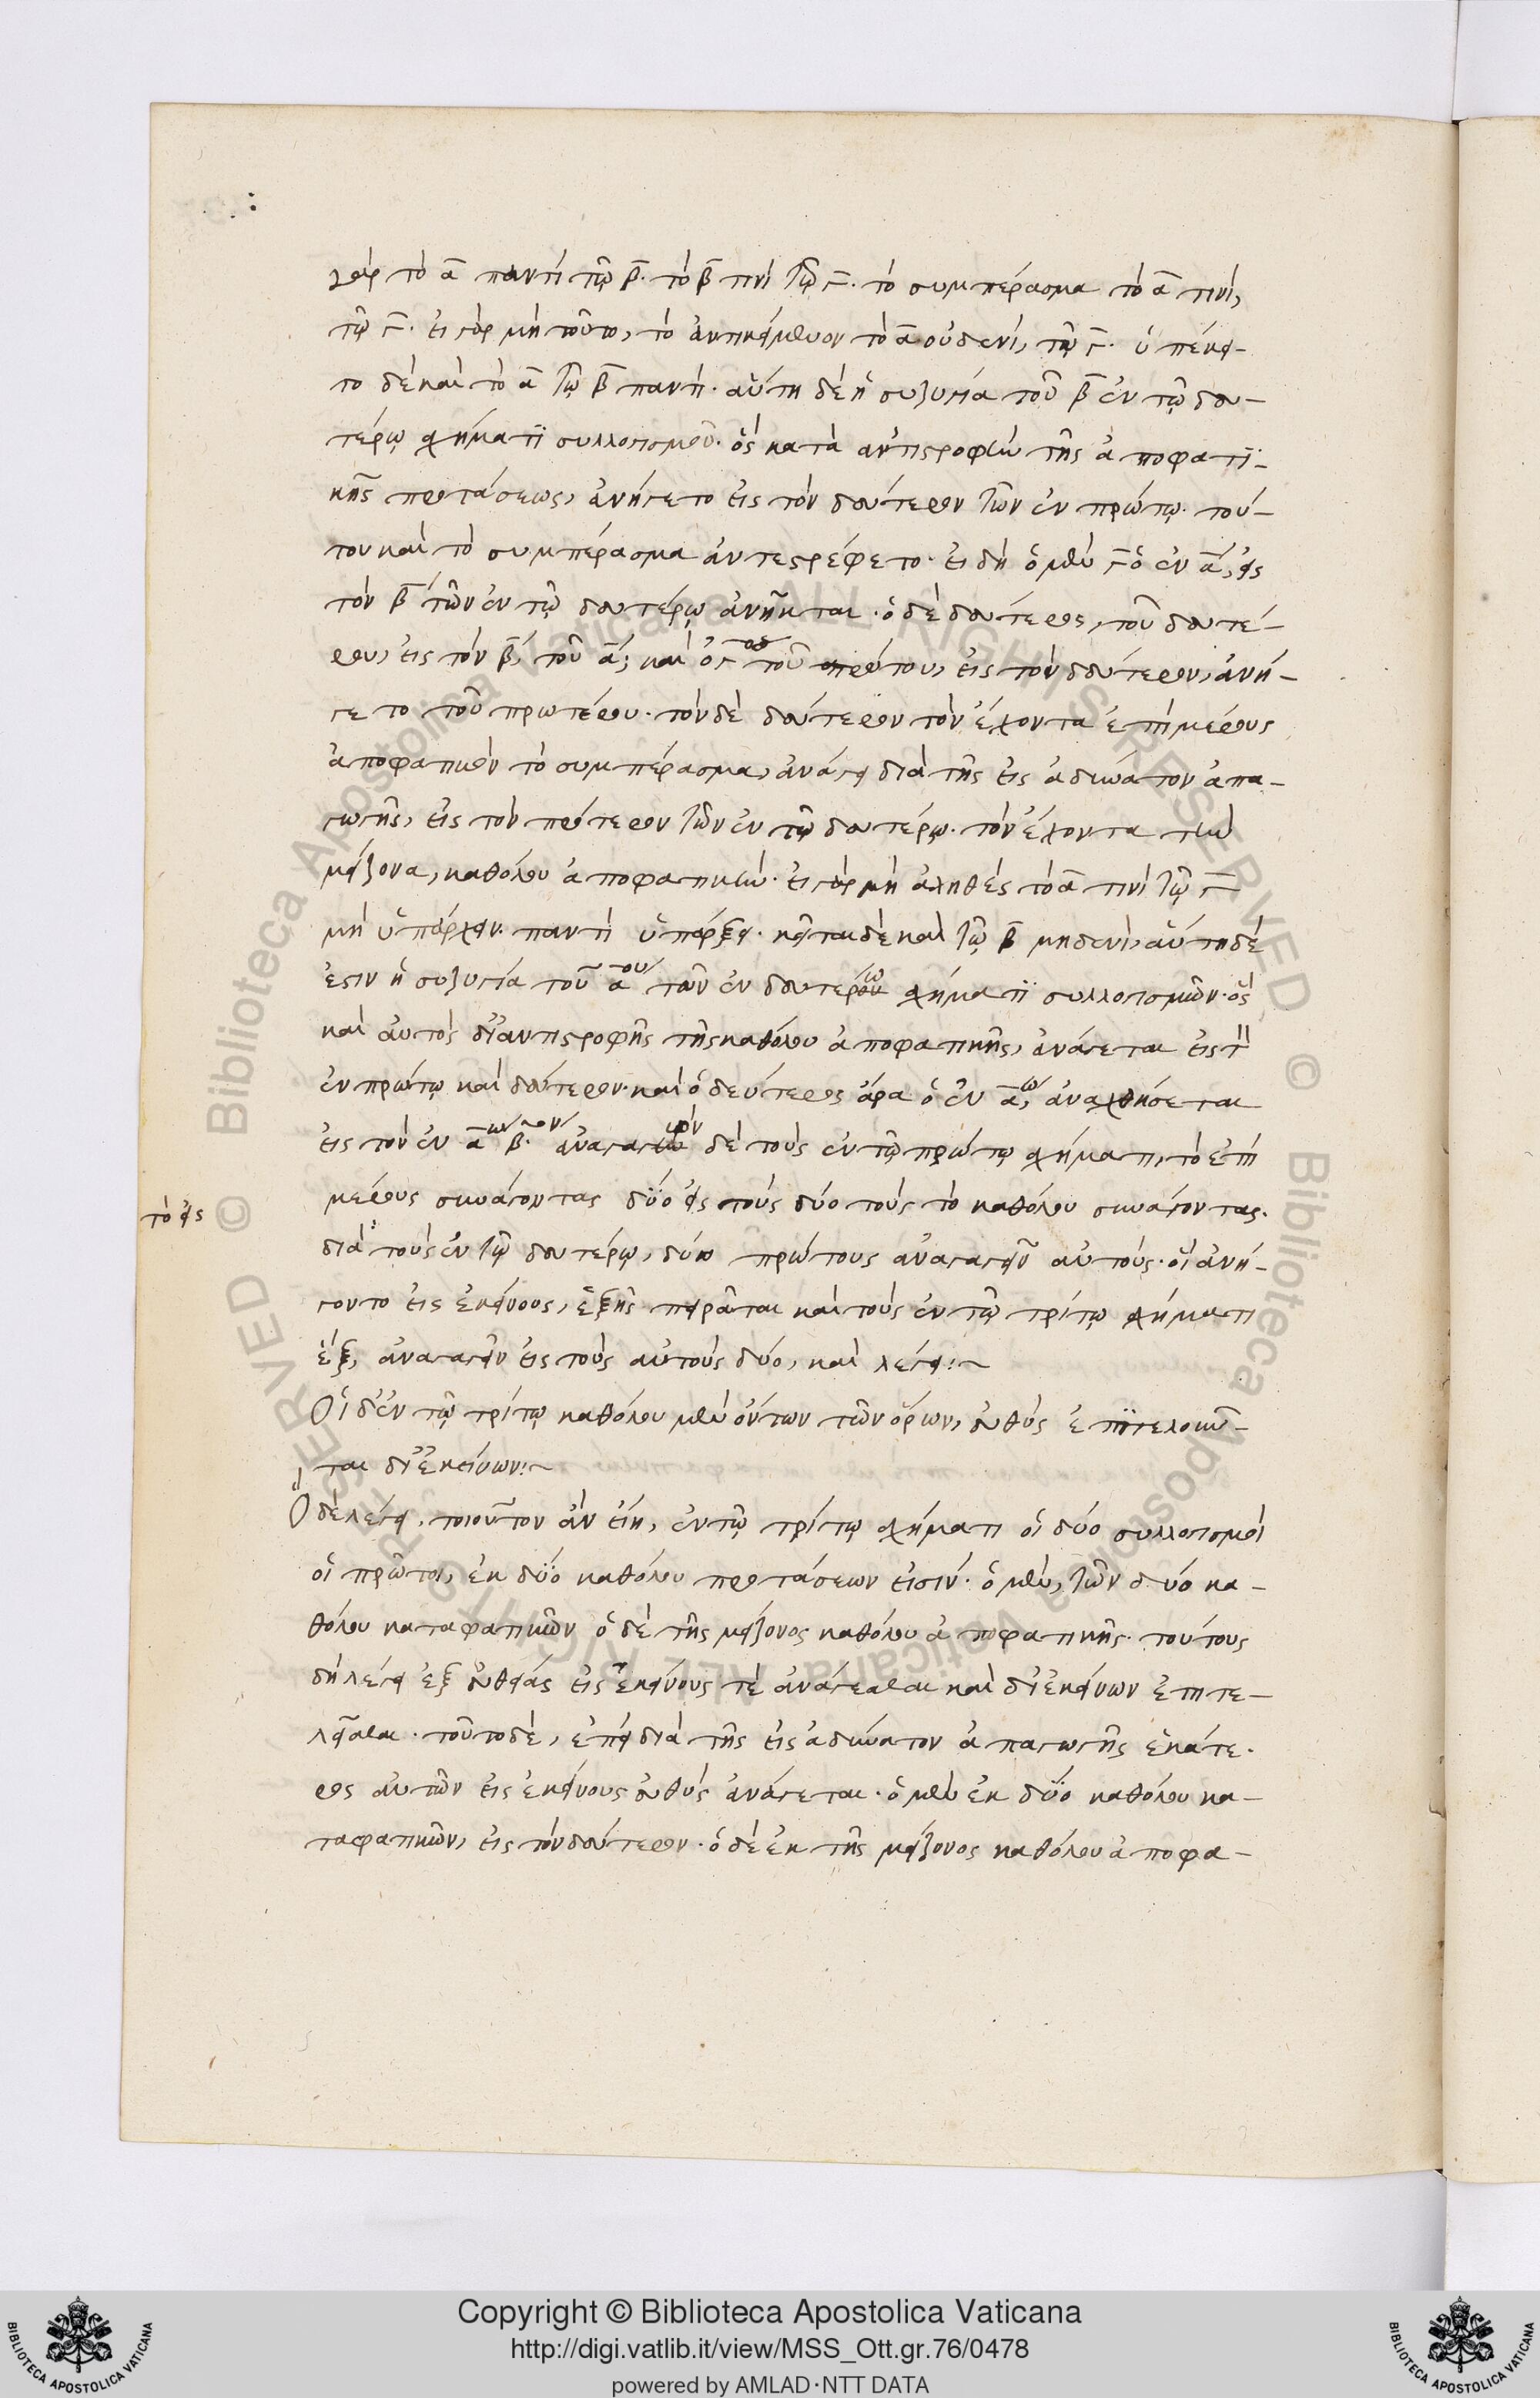 γὰρ τὸ α παντὶ τῷ β. τὸ β τινὶ τῷ γ. τὸ συμπέρασμα τὸ α τινὶ,
τῷ γ. εἰ γὰρ μὴ τοῦτο, τὸ ἀντικείμενον τὸ α οὐδενὶ, τῷ γ. ὑπέκει-
το δὲ καὶ τὸ α τῷ β παντί. αὕτη δὲ ἡ συζυγία τοῦ β ἐν τῷ δευ-
τέρῳ σχήματϊ συλλογισμοῦ. ὃς κατὰ ἀντιστροφὴν τῆς ἀποφατϊ-
κῆς προτάσεως, ἀνήγετο εἰς τὸν δεύτερον τῶν ἐν πρώτῳ. τού-
του καὶ τὸ συμπέρασμα ἀντεστρέφετο. εἰ δὴ ὁ μὲν γ ὁ ἐν α, εἰς
τὸν β τῶν ἐν τῷ δευτέρῳ ἀνῆκται. ὁ δὲ δεύτερος, τοῦ δευτέ-
ρου, εἰς τὸν β, τοῦ α, καὶ ὁ γ τοῦ πρώτου, εἰς τὸν δεύτερον, ἀνή-
γετο τοῦ πρωτέρου. τὸν δὲ δεύτερον τὸν ἔχοντα ἐπὶ μέρους
ἀποφατικὸν τὸ συμπέρασμα, ἀνάγει διὰ τῆς εἰς ἀδύνατον ἀπα-
γωγῆς, εἰς τὸν πρότερον τῶν ἐν τῷ δευτέρῳ. τὸν ἔχοντα τὴν
μείζονα, καθόλου ἀποφατικήν. εἰ γὰρ μὴ ἀληθὲς τὸ α τινὶ τῷ γ
μὴ ὑπάρχειν. παντὶ ὑπάρξει. κεῖται δὲ καὶ τῷ β μηδενὶ, αὕτη δέ
ἐστιν ἡ συζυγία τοῦ α ου τῶν ἐν δευτέρῳ σχήματϊ συλλογισμῶν. ὃς
καὶ αὐτὸς δι' ἀντιστροφῆς τῆς καθόλου ἀποφατικῆς, ἀνάγεται εἰς τὸν
ἐν πρώτῳ καὶ δεύτερον. καὶ ὁ δεύτερος ἄρα ὁ ἐν α ω, ἀναχθήσεται
εἰς τὸν ἐν α ω β ον. ἀναγαγὼν δὲ τοὺς ἐν τῷ πρώτῳ σχήματι, τὸ ἐπὶ
μέρους συνάγοντας δύο εἰς τοὺς δύο τοὺς τὸ καθόλου συνάγοντας.
τὸ εἰς
διὰ τοὺς ἐν τῷ δευτέρῳ, δύο πρώτους ἀναγαγεῖν αὐτούς. οἳ ἀνή-
γοντο εἰς ἐκείνους, ἑξῆς πειρᾶται καὶ τοὺς ἐν τῷ τρίτῳ σχήματι
ἓξ, ἀναγαγεῖν εἰς τοὺς αὐτοὺς δύο, καὶ λέγει:~
Οἱ δ' ἐν τῷ τρίτῳ καθόλου μὲν ὄντων τῶν ὅρων, εὐθὺς ἐπιτελοῦν-
ται δι' ἐκείνων:~
Ὃ δὲ λέγει, τοιοῦτον ἂν εἴη, ἐν τῷ τρίτῳ σχήματι οἱ δύο συλλογισμοὶ
οἱ πρῶτοι, ἐκ δύο καθόλου προτάσεων εἰσίν. ὁ μὲν, τῶν δύο κα-
θόλου καταφατικῶν ὁ δὲ τῆς μείζονος καθόλου ἀποφατικῆς. τούτους
δὴ λέγει ἐξ εὐθείας εἰς ἐκείνους τὲ ἀνάγεσθαι καὶ δι' ἐκείνων ἐπιτε-
λεῖσθαι. τοῦτο δὲ, ἐπεὶ διὰ τῆς εἰς ἀδύνατον ἀπαγωγῆς ἑκάτε-
ρος αὐτῶν εἰς ἐκείνους εὐθὺς ἀνάγεται. ὁ μὲν ἐκ δύο καθόλου κα-
ταφατικῶν, εἰς τὸν δεύτερον. ὁ δὲ ἐκ τῆς μείζονος καθόλου ἀποφα-
Copyright © Biblioteca Apostolica Vaticana
http://digi.vatlib.it/view/MSS_Ott.gr.76/0478
powered by AMLAD·NTT DATA